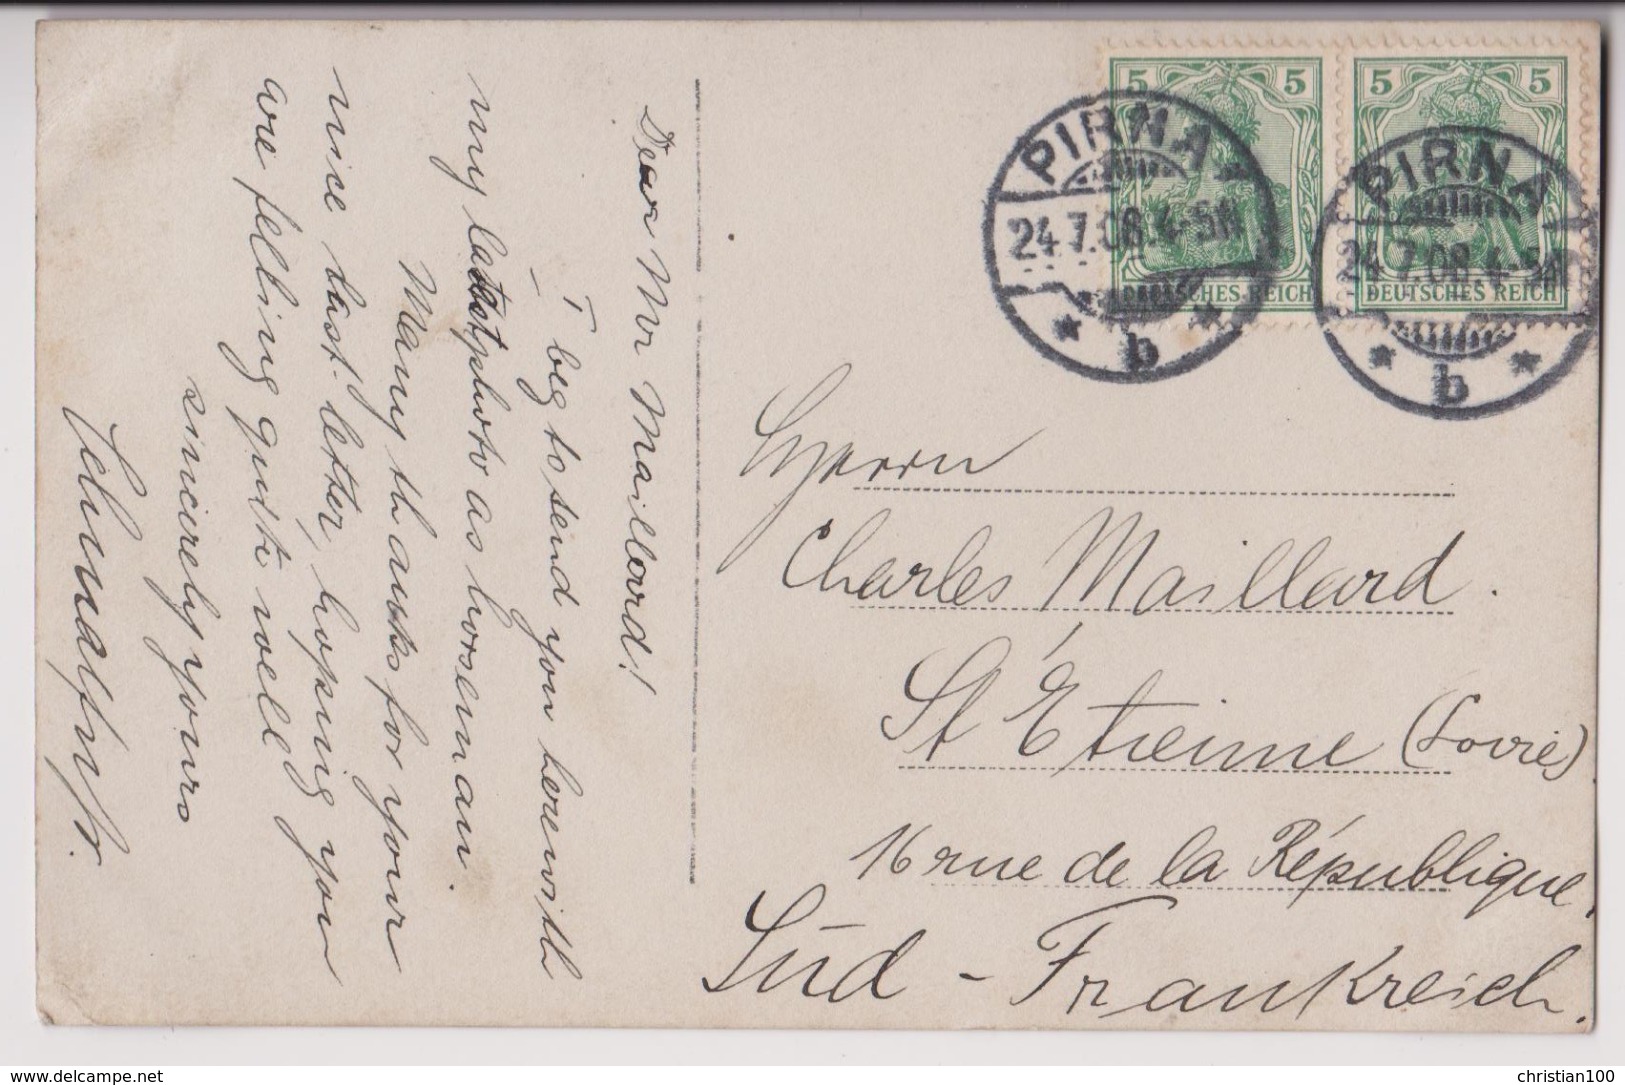 Dear Mr Maillard!
I beg to send you herewith
my latest photo as horseman.
Many thanks for your
nice last letter, hopsing you
are felling quite well
sincirely yours
5 5
5 5
DEUTSCHES REICH
DEUTSCHES REICH
PIRNA
24.7.08.4-5N
* b *
PIRNA
24.7.08.4-5N
* b *
Herrn
Charles Maillard.
St Étieinne (Loirie)
16 rue de la République,
Süd - Frankreich.
delcampe.net
christian100